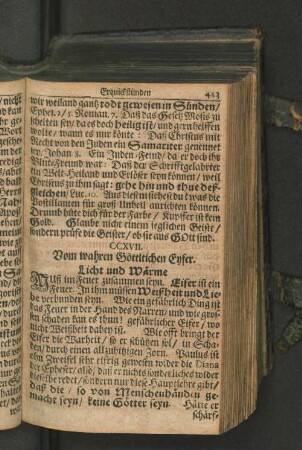 Erquickstunden 423
wir weiland gantz todt gewesen in Sünden/
Ephes. 2/ 1. Roman. 7. Daß das Gesetz Mosis zu
schelten sey/ da es doch heilig ist/ und gern helffen
wolte/ wann es nur könte: Daß Christus mit
Recht von den Juden ein Samariter genennet
sey/ Johan 8. Ein Juden-Feind/ da er doch ihr
Bluts-Freund war: Daß der Schrifftgelährter
ein Welt-Heiland und Erlöser seyn können/ weil
Christus zu ihm sagt: gehe hin und thue deß-
gleichen/ Luc. 10. Aus diesem siehestu du was die
Postillanten für groß Unheil anrichten können.
Drumb hüte dich für der Farbe/ Kupffer ist kein
Gold. Glaube nicht einem jeglichen Geiste/
sondern prüfe die Geister/ ob sie aus GOtt sind.
CCXVII.
Vom wahren Göttlichen Eyfer.
Licht und Wärme
Muß im Feuer zusammen seyn. Eifer ist ein
Feuer. In ihm müssen Weißheit und Lie-
be verbunden seyn. Wie ein gefährlich Ding ist
das Feuer in der Hand des Narren/ und wie gros-
sen Schaden kan es thun! gefährlicher Eifer/ wo
nicht Weißheit dabey ist. Wie offt bringt der
Eifer die Warheit/ so er schützen sol/ in Scha-
den/ durch einen allzuhitzigen Zorn. Paulus ist
ohn Zweiffel sehr eifrig gewesen wider die Diana
der Epheser/ also/ daß er nichts sonderliches wider
dieselbe redet/ sondern nur diese Hauptlehre gibt/
daß die/ so von Menschenhänden ge-
macht seyn/ keine Götter seyn. Hätte er
scharf-